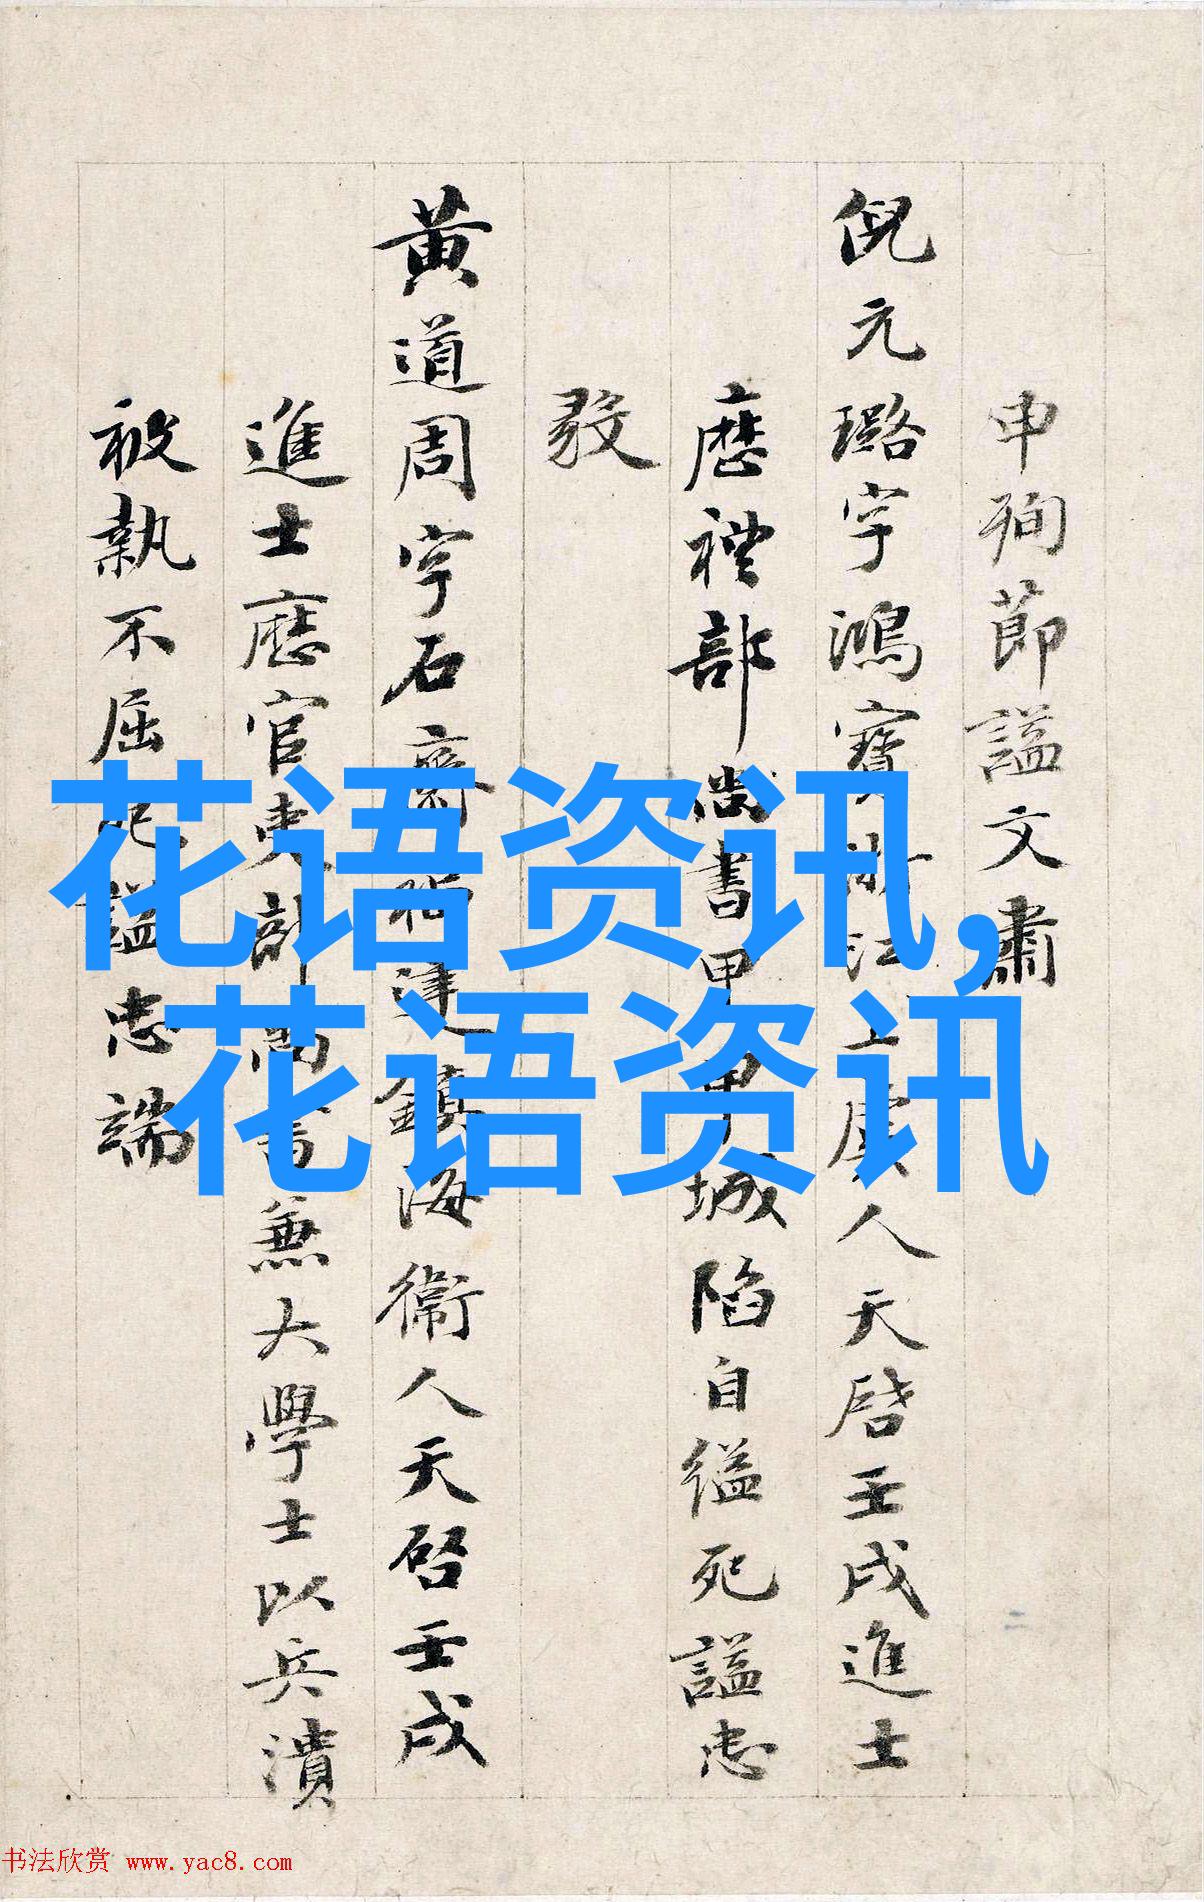 申殉節謚文肅
倪元璐字鴻寶浙江上虞人天啓壬戌進士
歷禮部尚書甲申城陷自縊死謚忠
毅
黄道周字石齋福建鎮海衞人天啓壬戌
進士歷官吏部尚書兼大學士以兵潰
被執不屈死謚忠端
花语资讯,
花语资讯
书法欣赏 www.yac8.com